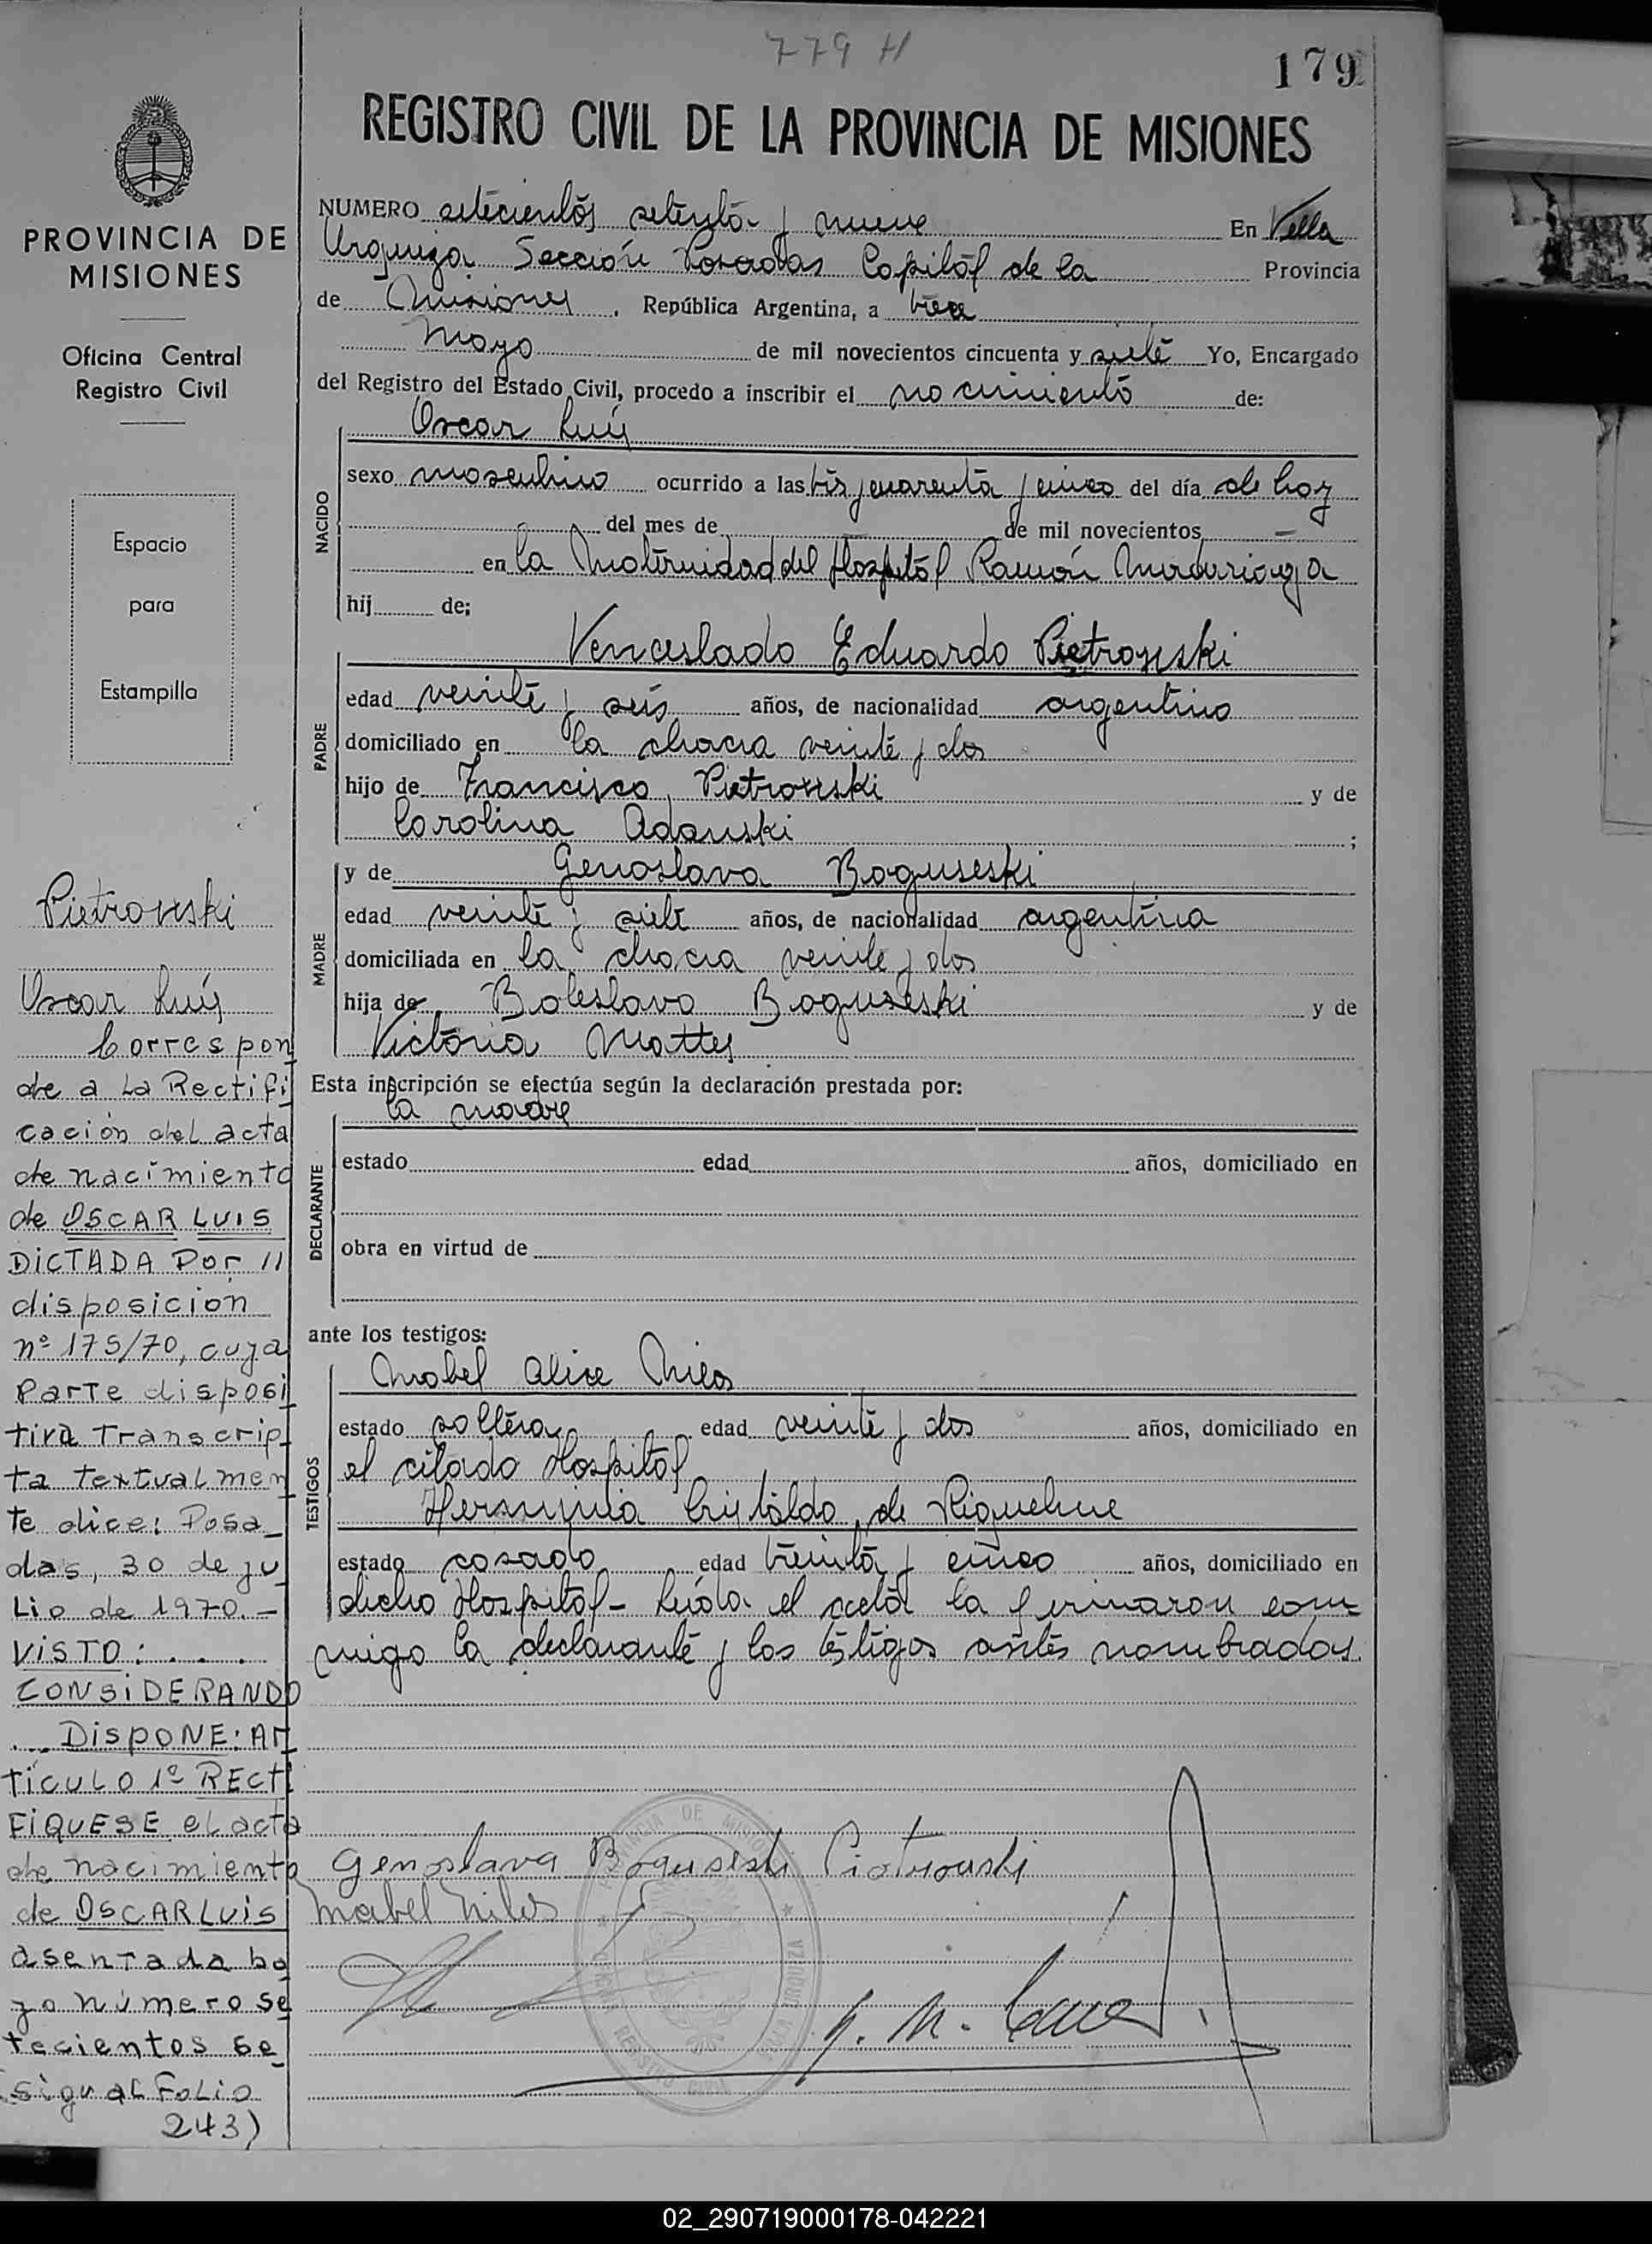 779 H
179
REGISTRO CIVIL DE LA PROVINCIA DE MISIONES
PROVINCIA DE
MISIONES
Oficina Central
Registro Civil
Espacio
para
Estampilla
Pietrowski
Oscar Luís
Correspon
de a La Rectifi
cación del acta
de nacimiento
de OSCAR LUIS
DICTADA Por //
disposición
nº 175/70, cuya
Parte disposi
tiva Transcrip
ta textualmen
te dice: Posa_
das, 30 de ju_
Lio de 1970.-
VISTO: . . . .
CONSIDERANDO
... DISPONE: Ar
TÍCULO 1º RECTI
FIQUESE el acta
de nacimiento
de OSCAR LUIS
asentada ba
jo número se
tecientos se_
(sigue al Folio
243)
NUMERO setecientos setenta y nueve En Villa
Urquiza Sección Posadas Capital de la Provincia
de Misiones, República Argentina, a trece
Mayo de mil novecientos cincuenta y siete Yo, Encargado
del Registro del Estado Civil, procedo a inscribir el nacimiento de:
NACIDO
Oscar Luis
sexo masculino ocurrido a las tres y cuarenta y cinco del día de hoy
del mes de de mil novecientos -
en la Maternidad del Hospital Ramón Madariaga
hij de;
PADRE
Venceslado Eduardo Pietrowski
edad veinte y seis años, de nacionalidad argentino
domiciliado en la chacra veinte y dos
hijo de Francisco Pietrowski y de
Carolina Adanski ;
MADRE
y de Genoslava Boguseski
edad veinte y siete años, de nacionalidad argentina
domiciliada en la chacra veinte y dos
hija de Boleslavo Boguseski y de
Victoria Mattes
Esta inscripción se efectúa según la declaración prestada por:
DECLARANTE
la madre
estado edad años, domiciliado en
obra en virtud de
ante los testigos:
TESTIGOS
Mabel Alice Niles
estado soltera edad veinte y dos años, domiciliado en
el citado Hospital
Herminia Cristaldo de Riquelme
estado casada edad treinta y cinco años, domiciliado en
dicho Hospital - Leída el acta la firmaron con-
migo la declarante y los testigos antes nombrados.
Genoslava Boguseski Piotrowski
Mabel Niles
PROVINCIA DE MISIONES
VILLA URQUIZA
REGISTRO CIVIL
02_290719000178-042221